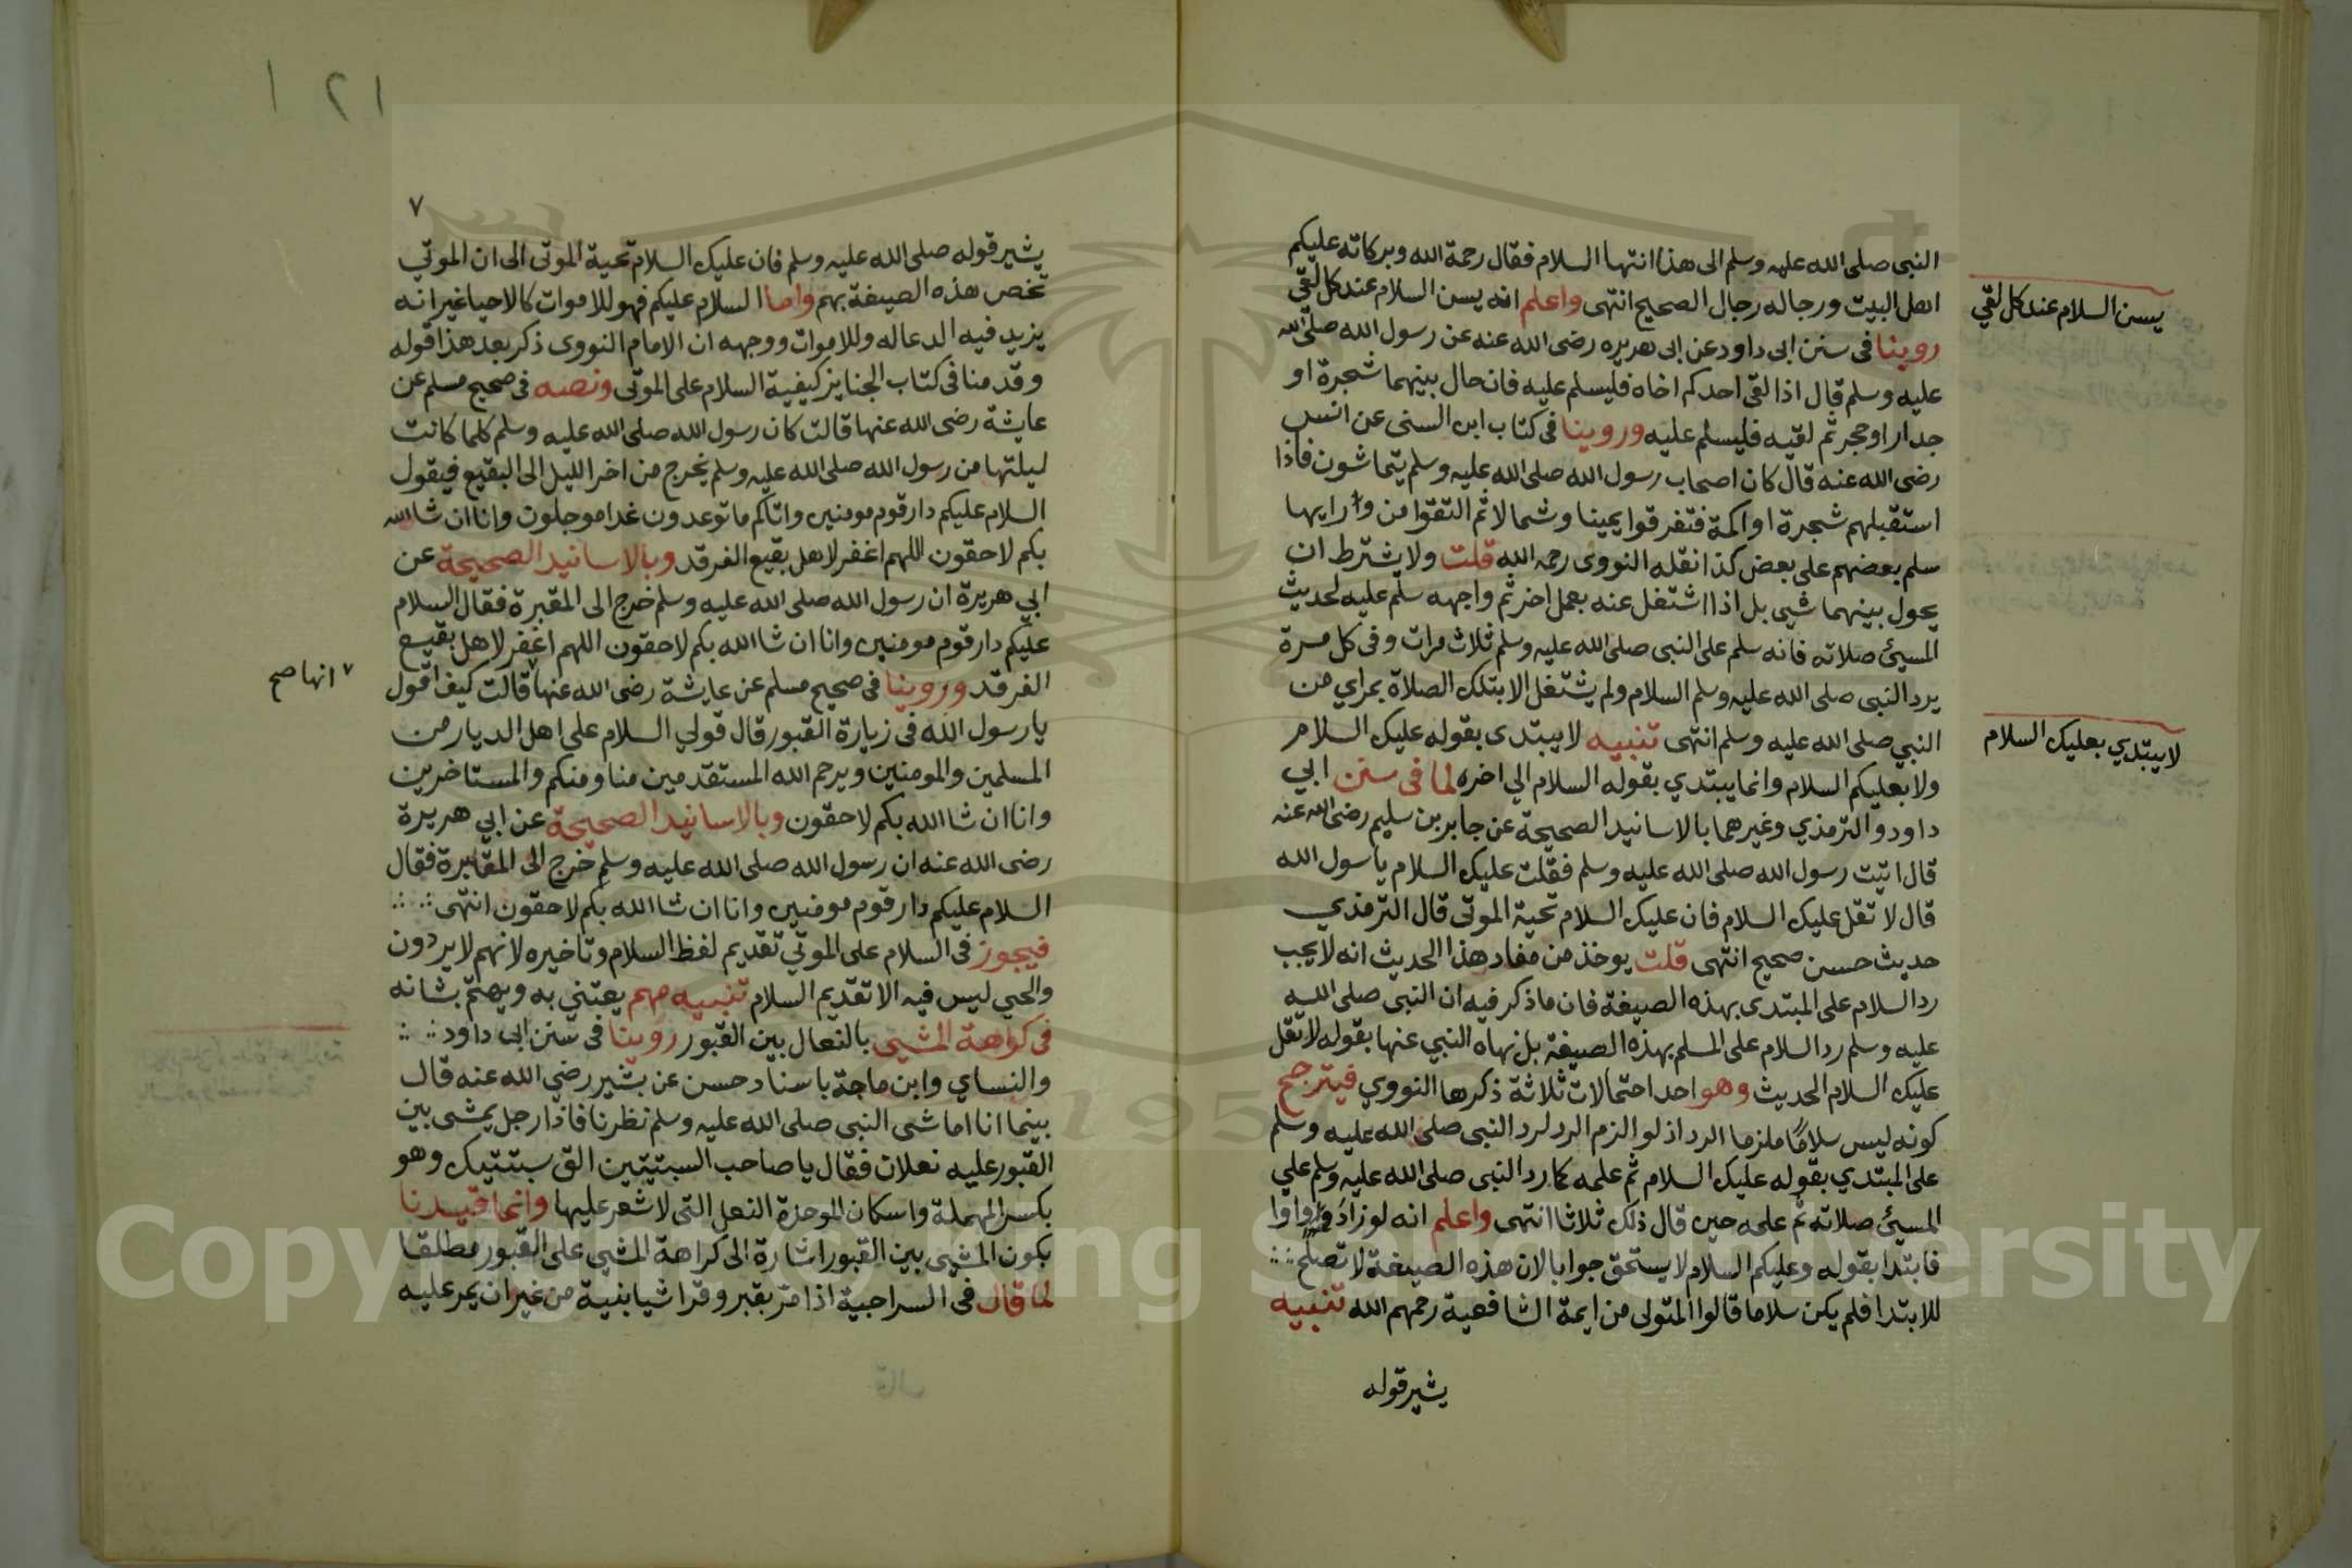 النبى صلى الله عليه وسلم الى هذا انتها السلام فقال رحمة الله وبركاته عليكم
اهل البيت ورجاله رجال الصحيح انتهى واعلم انه يسن السلام عند كل لقي
يسن السلام عند كل لقي
روينا فى سنن ابى داود عن ابى هريره رضى الله عنه عن رسول الله صلى الله
عليه وسلم قال اذا لقى احدكم اخاه فليسلم عليه فان حال بينهما شجرة او
جدار او حجر ثم لقيه فليسلم عليه وروينا فى كتاب ابن السنى عن انس
رضى الله عنه قال كان اصحاب رسول الله صلى الله عليه وسلم يتماشون فاذا
استقبلهم شجرة او اكمة فتفرقوا يمينا وشمالا ثم التقوا من ورايها
سلم بعضهم على بعض كذا نقله النووى رحمه الله قلت ولا يشترط ان
يحول بينهما شيى بل اذا اشتغل عنه بعمل اخر ثم واجهه سلم عليه لحديث
المسيئ صلاته فانه سلم على النبى صلى الله عليه وسلم ثلاث مرات وفى كل مرة
يرد النبى صلى الله عليه وسلم السلام ولم يشتغل الا بتلك الصلاة بمراي من
النبي صلى الله عليه وسلم انتهى تنبيه لا يبتدى بقوله عليك السلام
لا يبتدي بعليك السلام
ولا بعليكم السلام وانما يبتدي بقوله السلام الي اخره لما فى سنن ابي
داود والترمذي وغيرهما بالاسانيد الصحيحة عن جابر بن سليم رضى الله عنه
قال اتيت رسول الله صلى الله عليه وسلم فقلت عليك السلام ياسول الله
قال لا تقل عليك السلام فان عليك السلام تحية الموتى قال الترمذي
حديث حسن صحيح انتهى قلت يوخذ من مفاد هذا الحديث انه لا يجب
رد السلام على المبتدى بهذه الصيغة فان ما ذكر فيه ان النبى صلى الله
عليه وسلم رد السلام على المسلم بهذه الصيغة بل نهاه النبي عنها بقوله لا تقل
عليك السلام الحديث وهو احد احتمالات ثلاثة ذكرها النووي فيترجح
كونه ليس سلامًا ملزما الرد اذ لو الزم الرد لرد النبى صلى الله عليه وسلم
على المبتدي بقوله عليك السلام ثم علمه كما رد النبى صلى الله عليه وسلم علي
المسيئ صلاته ثم علمه حين قال ذلك ثلاثا انتهى واعلم انه لو زاد واوا
فابتدا بقوله وعليكم السلام لا يستحق جوابا لان هذه الصيغة لا تصلح
للابتدا فلم يكن سلاما قالوا المتولى من ايمة الشافعية رحمهم الله تنبيه
يشير قوله
١٢١
٧
يشير قوله صلى الله عليه وسلم فان عليك السلام تحية الموتى الى ان الموتي
تخص هذه الصيغة بهم واما السلام عليكم فهو للاموات كالاحيا غير انه
يزيد فيه الدعا له وللاموات ووجهه ان الامام النووى ذكر بعد هذا قوله
وقدمنا فى كتاب الجنايز كيفية السلام على الموتى ونصه فى صحيح مسلم عن
عايشة رضى الله عنها قالت كان رسول الله صلى الله عليه وسلم كلما كانت
ليلتها من رسول الله صلى الله عليه وسلم يخرج من اخر الليل الى البقيع فيقول
السلام عليكم دار قوم مومنين واتاكم ما توعدون غدا موجلون وانا ان شا الله
بكم لاحقون اللهم اغفر لاهل بقيع الغرقد وبالاسانيد الصحيحة عن
ابي هريرة ان رسول الله صلى الله عليه وسلم خرج الى المقبرة فقال السلام
عليكم دار قوم مومنين وانا ان شا الله بكم لاحقون اللهم اغفر لاهل بقيع
الغرقد وروينا فى صحيح مسلم عن عايشة رضى الله عنها ٧ قالت كيف اقول
٧ انها صح
يا رسول الله فى زيارة القبور قال قولي السلام على اهل الديار من
المسلمين والمومنين ويرحم الله المستقدمين منا ومنكم والمستاخرين
وانا ان شا الله بكم لاحقون وبالاسانيد الصحيحة عن ابي هريرة
رضى الله عنه ان رسول الله صلى الله عليه وسلم خرج الى المقابرة فقال
السلام عليكم دار قوم مومنين وانا ان شا الله بكم لاحقون انتهى
فيجوز فى السلام على الموتي تقديم لفظ السلام وتاخيره لانهم لا يردون
والحي ليس فيه الا تقديم السلام تنبيه مهم يعتني به ويهتم بشانه
فى كراهة المشيى بالنعال بين القبور روينا فى سنن ابى داود
والنساي وابن ماجة باسناد حسن عن بشير رضي الله عنه قال
بينما انا اماشى النبى صلى الله عليه وسلم نظرنا فاذا رجل يمشى بين
القبور عليه نعلان فقال يا صاحب السبتيتين الق سبتتيك وهو
بكسر المهملة واسكان الموحدة النعل التى لا شعر عليها وانما قيدنا
بكون المشيى بين القبور اشارة الى كراهة المشيى على القبور مطلقا
لما قال فى السراجية اذا مرّ بقبر وقرا شيا بنية من غير ان يمر عليه
Copyright © King Saud University
1957